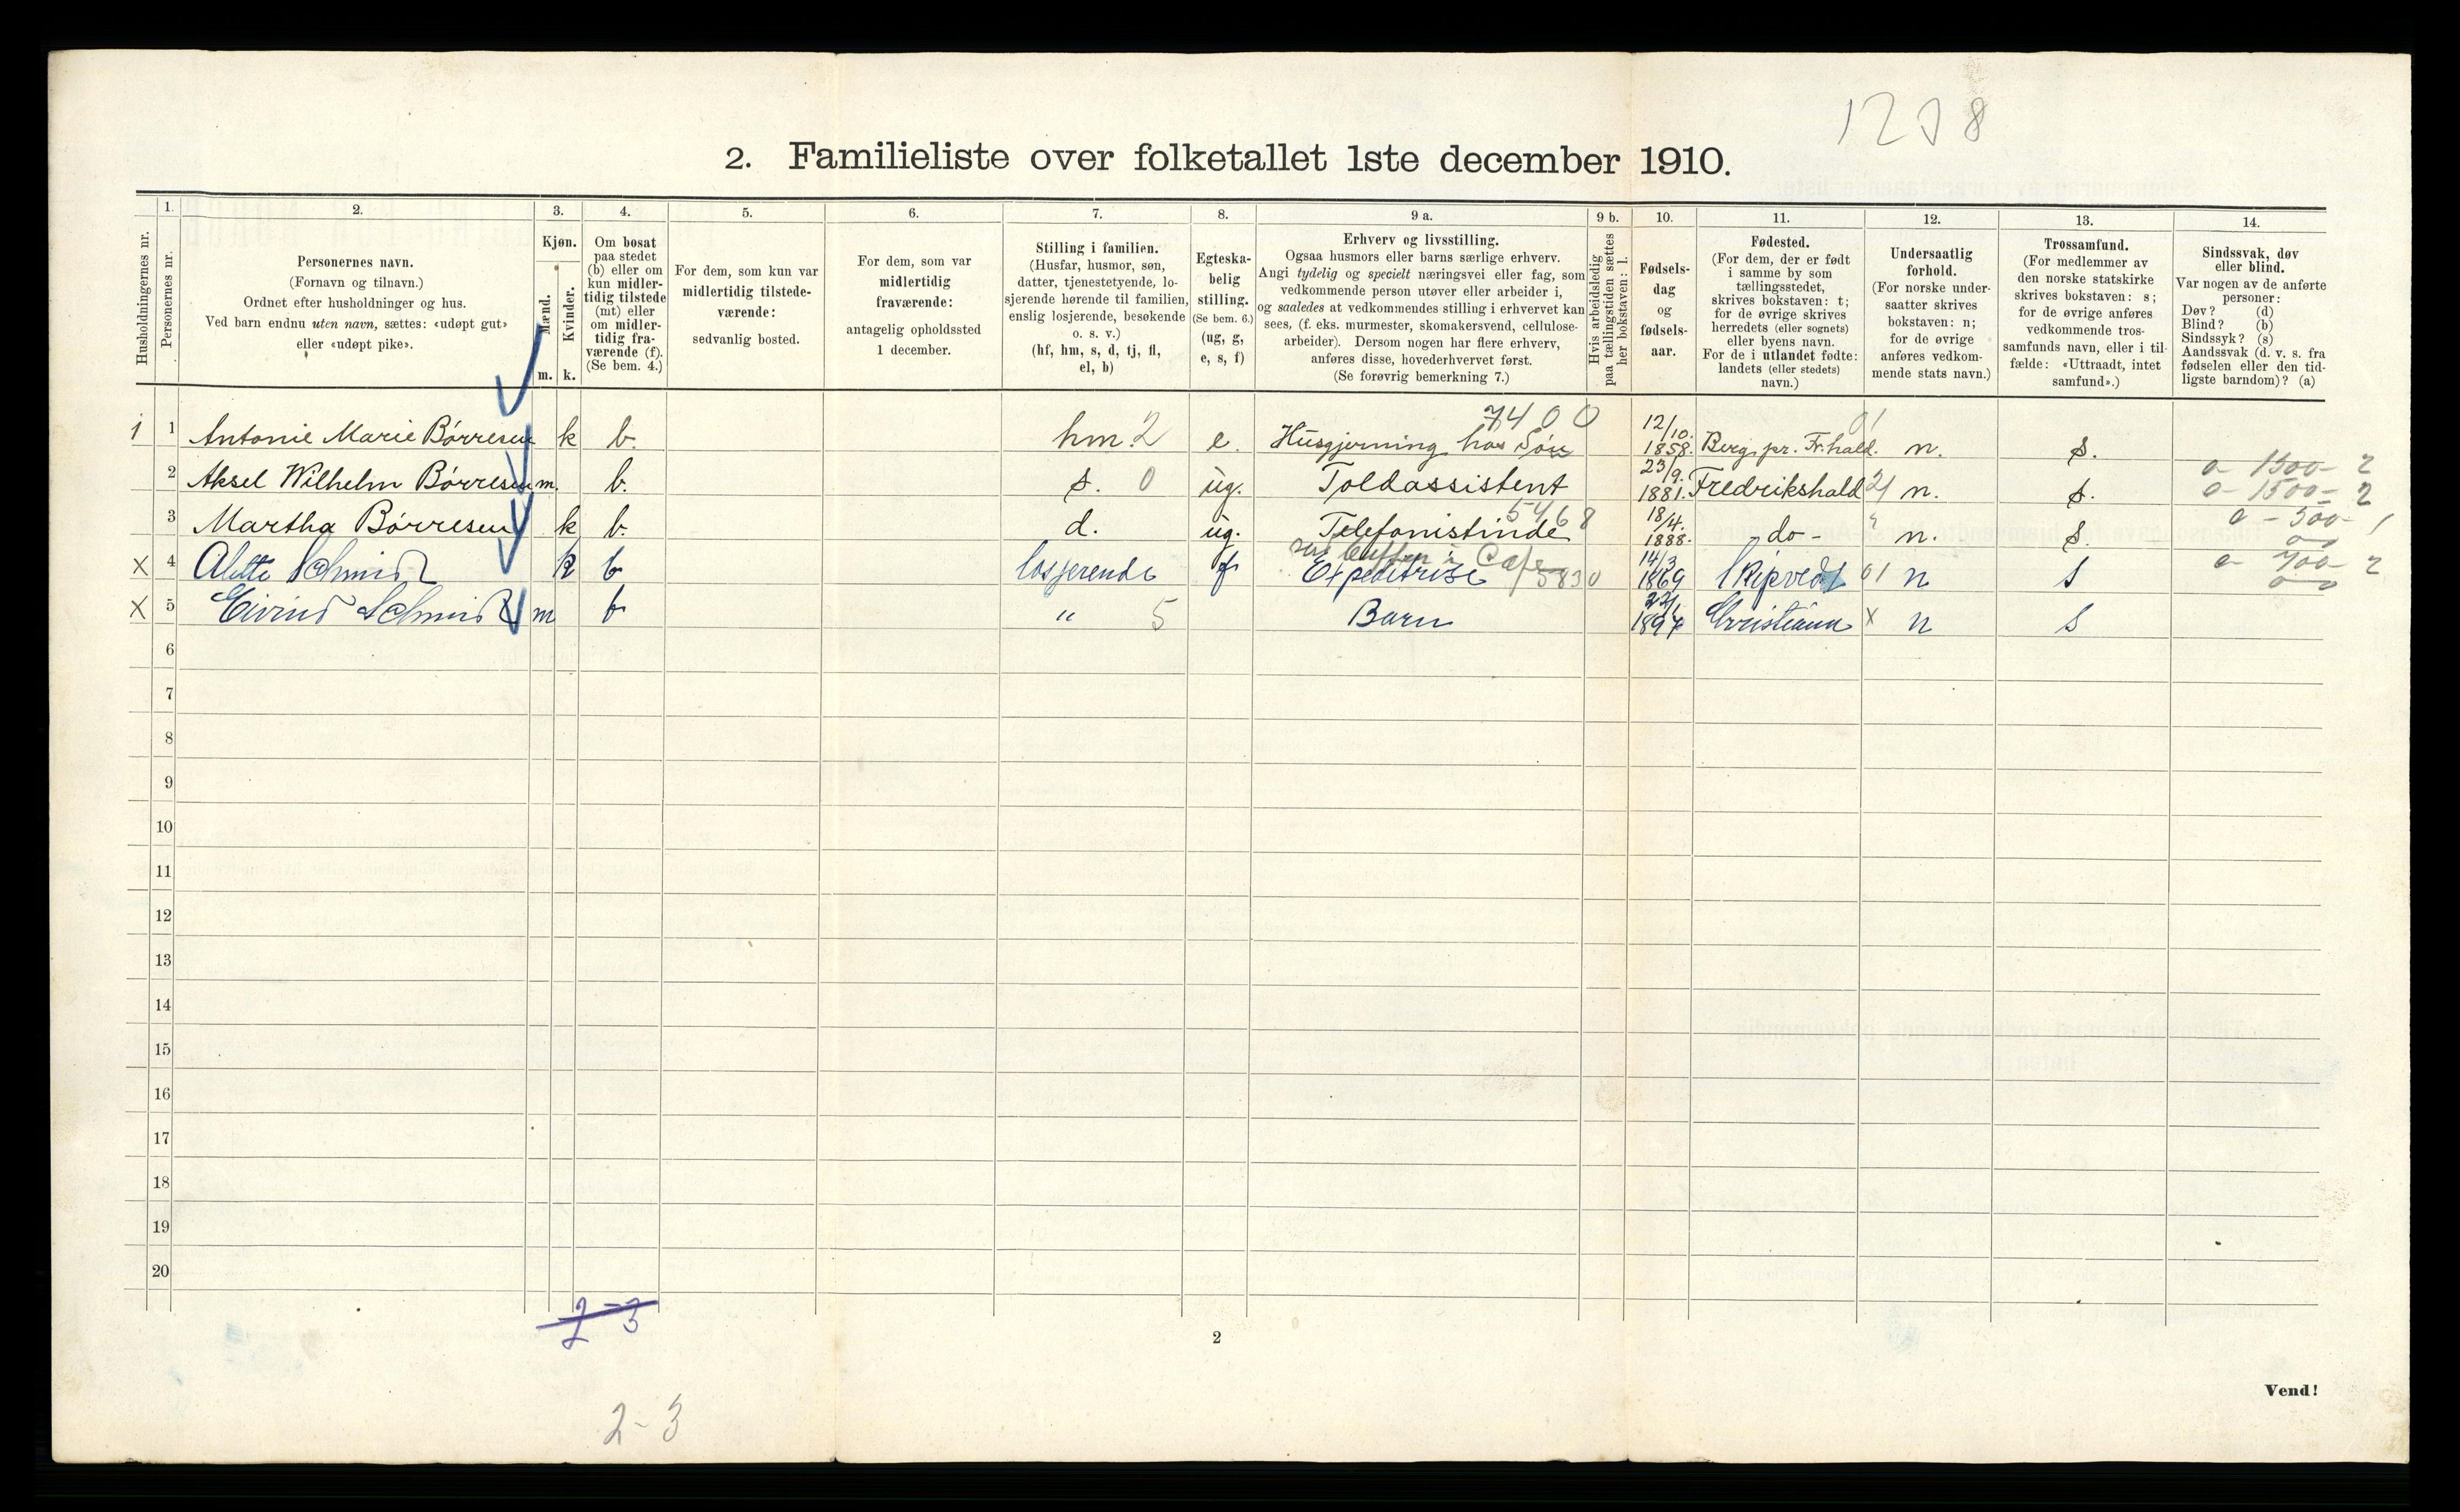 1208
2. Familieliste over folketallet 1ste december 1910.
1. 2. 3. 4. 5. 6. 7. 8. 9 a. 9 b. 10. 11. 12. 13. 14.
Husholdningernes nr.
Personernes nr.
Personernes navn.
(Fornavn og tilnavn.)
Ordnet efter husholdninger og hus.
Ved barn endnu uten navn, sættes: «udøpt gut»
eller «udøpt pike».
Kjøn.
Mænd.
Kvinder.
m. k.
Om bosat
paa stedet
(b) eller om
kun midler-
tidig tilstede
(mt) eller
om midler-
tidig fra-
værende (f).
(Se bem. 4.)
For dem, som kun var
midlertidig tilstede-
værende:
sedvanlig bosted.
For dem, som var
midlertidig
fraværende:
antagelig opholdssted
1 december.
Stilling i familien.
(Husfar, husmor, søn,
datter, tjenestetyende, lo-
sjerende hørende til familien,
enslig losjerende, besøkende
o. s. v.)
(hf, hm, s, d, tj, fl,
el, b)
Egteska-
belig
stilling.
(Se bem. 6.)
(ug, g,
e, s, f)
Erhverv og livsstilling.
Ogsaa husmors eller barns særlige erhverv.
Angi tydelig og specielt næringsvei eller fag, som
vedkommende person utøver eller arbeider i,
og saaledes at vedkommendes stilling i erhvervet kan
sees, (f. eks. murmester, skomakersvend, cellulose-
arbeider). Dersom nogen har flere erhverv,
anføres disse, hovederhvervet først.
(Se forøvrig bemerkning 7.)
Hvis arbeidsledig
paa tællingstiden sættes
her bokstaven: l.
Fødsels-
dag
og
fødsels-
aar.
Fødested.
(For dem, der er født
i samme by som
tællingsstedet,
skrives bokstaven: t;
for de øvrige skrives
herredets (eller sognets)
eller byens navn.
For de i utlandet fødte:
landets (eller stedets)
navn.)
Undersaatlig
forhold.
(For norske under-
saatter skrives
bokstaven: n;
for de øvrige
anføres vedkom-
mende stats navn.)
Trossamfund.
(For medlemmer av
den norske statskirke
skrives bokstaven: s;
for de øvrige anføres
vedkommende tros-
samfunds navn, eller i til-
fælde: «Uttraadt, intet
samfund».)
Sindssvak, døv
eller blind.
Var nogen av de anførte
personer:
Døv? (d)
Blind? (b)
Sindssyk? (s)
Aandssvak (d. v. s. fra
fødselen eller den tid-
ligste barndom)? (a)
7400 01
1 1 Antonie Marie Børresen k b. hm. 2 e. Husgjerning hos Søn 12/10. 1858. Berg pr. Fr.hald. n. s.
2 Aksel Wilhelm Børresen m. b. s. 0 ug. Toldassistent 23/9. 1881. Fredrikshald 21 n. s. 0- 1500- 2
0- 1500- 2
3 Martha Børresen k b. d. ug. Telefonistinde 5468 18/4. 1888. - do - n. s. 0 - 500- 1
X 4 Alette Schmidt k b losjerende f Expeditrise i Cafe 5830 14/3 1869 Skipvedt 01 n s 0- 700- 2
X 5 Eivind Schmidt m b " 5 Barn 1897 Christiania X n s
6
7
8
9
10
11
12
13
14
15
16
17
18
19
20
2-3
2
Vend!
2-3